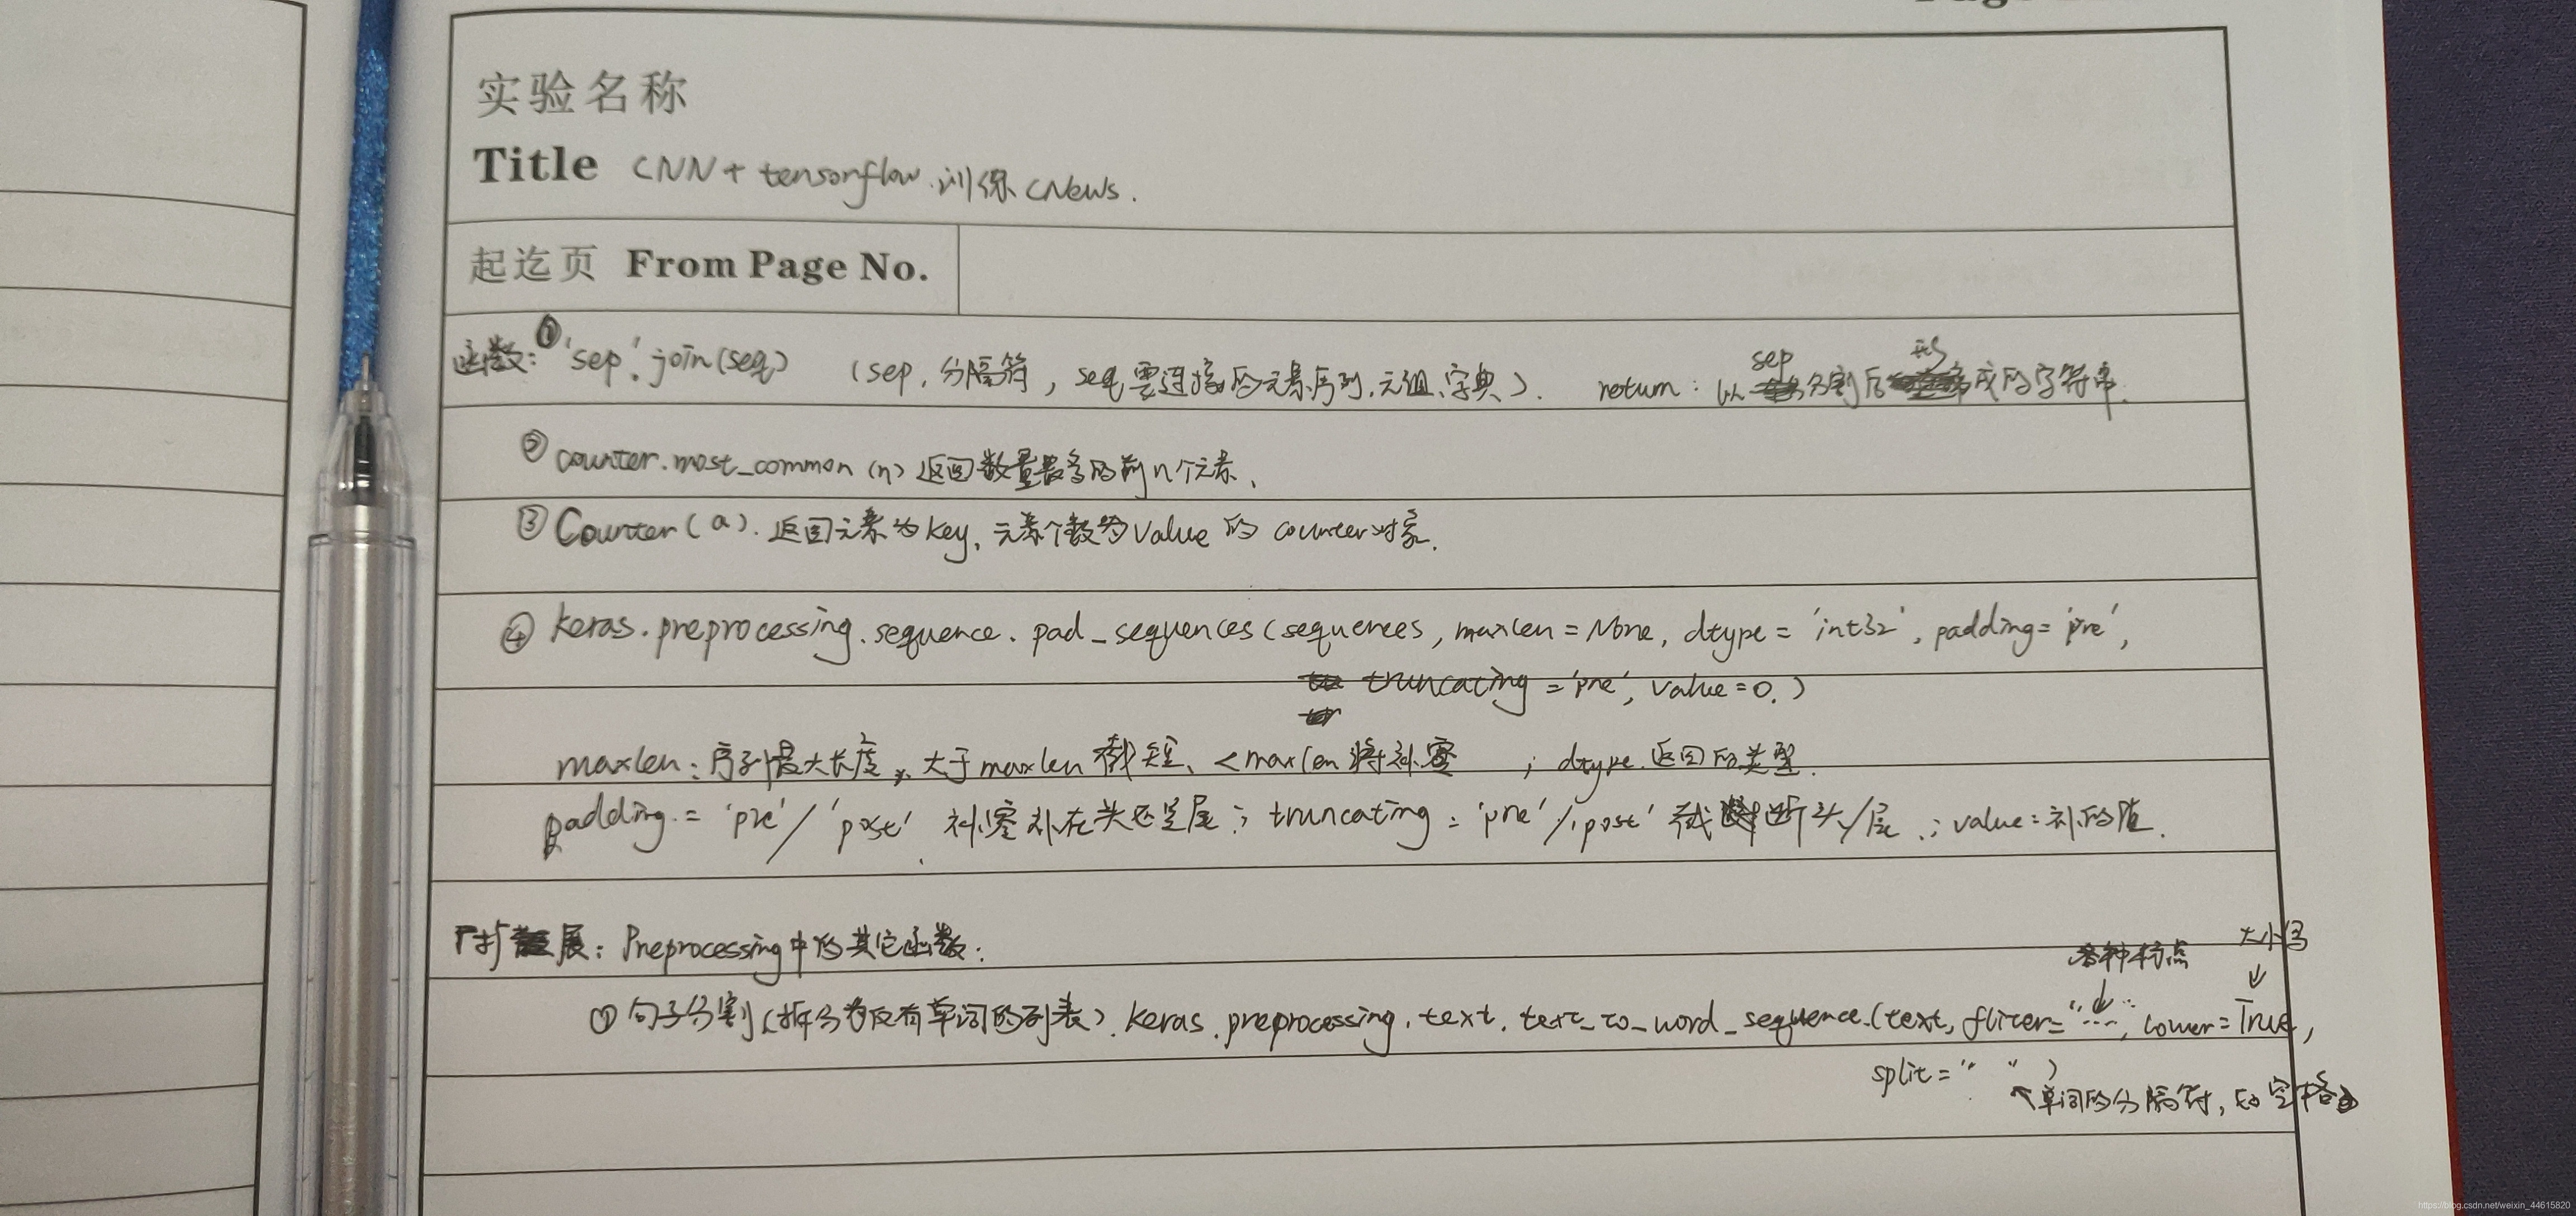 实验名称
Title CNN + tensorflow 训练 CNews.
起迄页 From Page No.
函数: ① 'sep'.join(seq) (sep, 分隔符, seq, 要连接的元素序列、元组、字典). return: 以 sep 分割后形成的字符串.
② counter.most_common (n) 返回数量最多的前n个元素、
③ Counter(a). 返回元素为key, 元素个数为value 的 counter对象.
④ keras.preprocessing.sequence.pad_sequences(sequences, maxlen=None, dtype='int32', padding='pre',
truncating='pre', value=0.)
maxlen: 序列最大长度, 大于maxlen 截短、<maxlen 将补零 ; dtype. 返回的类型.
padding = 'pre'/'post' 补零补在头还是尾; truncating: 'pre'/'post' 截断头/尾.; value: 补的值.
扩展: Preprocessing中的其它函数:
各种标点 大小写
① 句子分割(拆分为仅有单词的列表). keras.preprocessing.text.text_to_word_sequence.(text, fliter="....", lower=True,
split=" ")
单词的分隔符, 如空格
https://blog.csdn.net/weixin_44615820